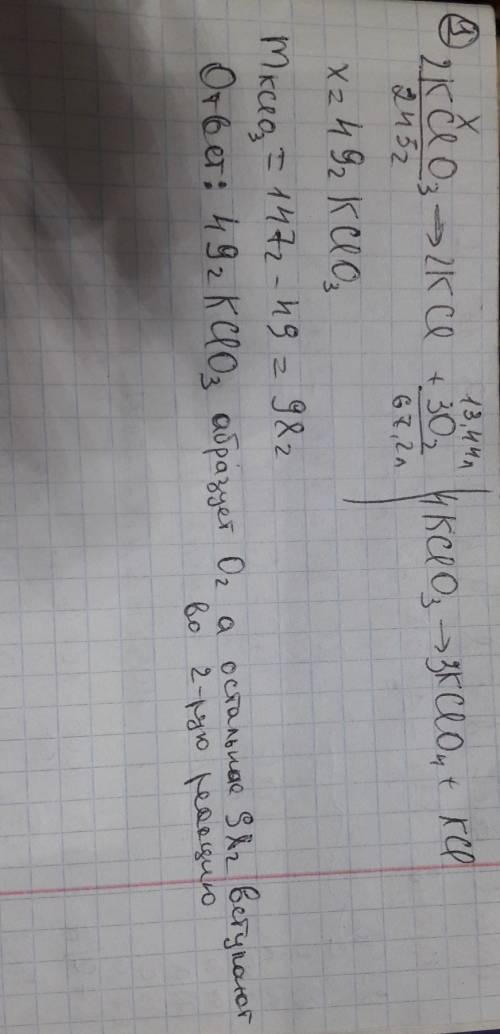 9
x 13,44л
2KClO₃ → 2KCl + 3O₂ | 4KClO₃ → 3KClO₄ + KCl
245г 67,2л
x = 49г KClO₃
mKClO₃ = 147г - 49 = 98г
Ответ: 49г KClO₃ абразует O₂ а остальные 98г вступают
во 2-рую реакцию